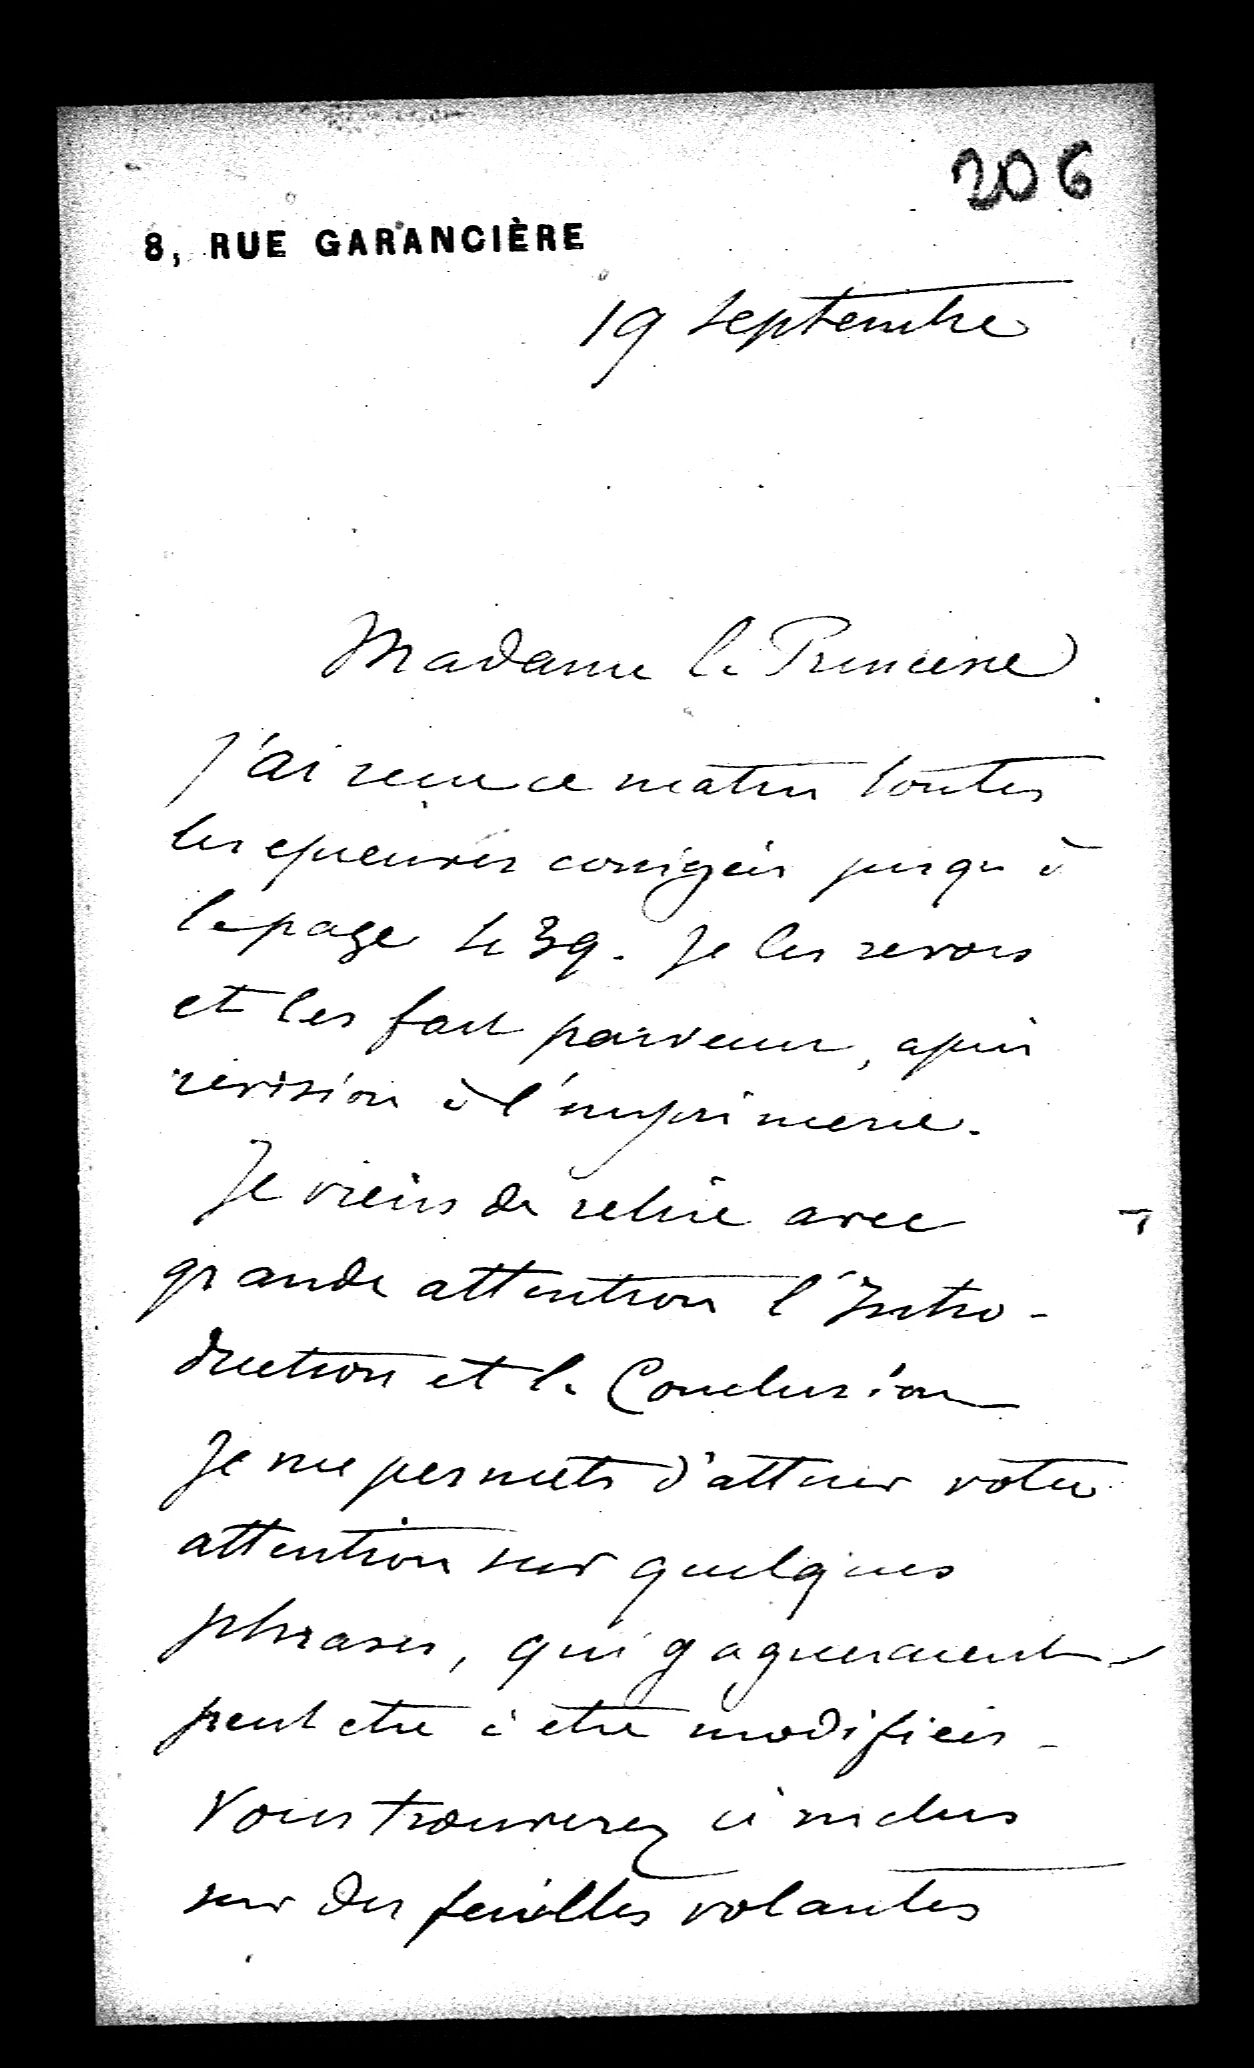 206
8, RUE GARANCIÈRE
19 septembre
Madame la Princesse
J'ai reçu ce matin toutes
les epreuves corrigées jusqu'à
la page 439. Je les revois
et les fait parvenir, après
révision à l'imprimerie.
Je viens de relire avec
grande attention l'Intro-
duction et la Conclusion
Je me permets d'attirer votre
attention sur quelques
phrases, qui gagneraient
peut etre à etre modifiées -
Vous trouverez ci inclus
sur des feuilles volantes